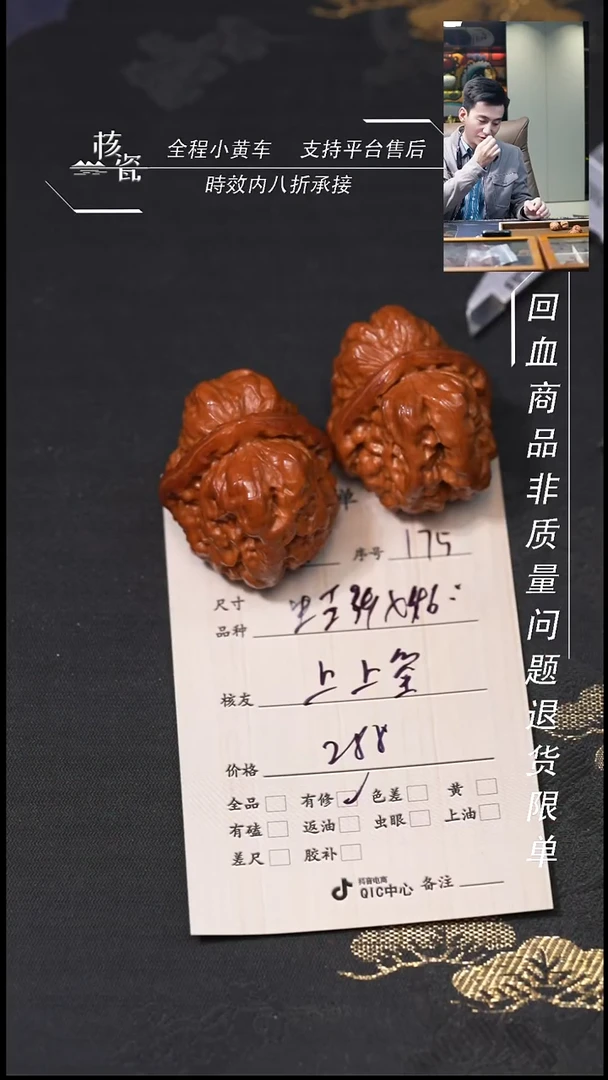 核瓷
全程小黄车 支持平台售后
時效内八折承接
回血商品非质量问题退货限单
单
序号 175
尺寸
品种 39X46
核友 上上签
价格 288
全品 有修 色差 黄
有磕 返油 虫眼 上油
差尺 胶补
抖音电商
QIC中心 备注